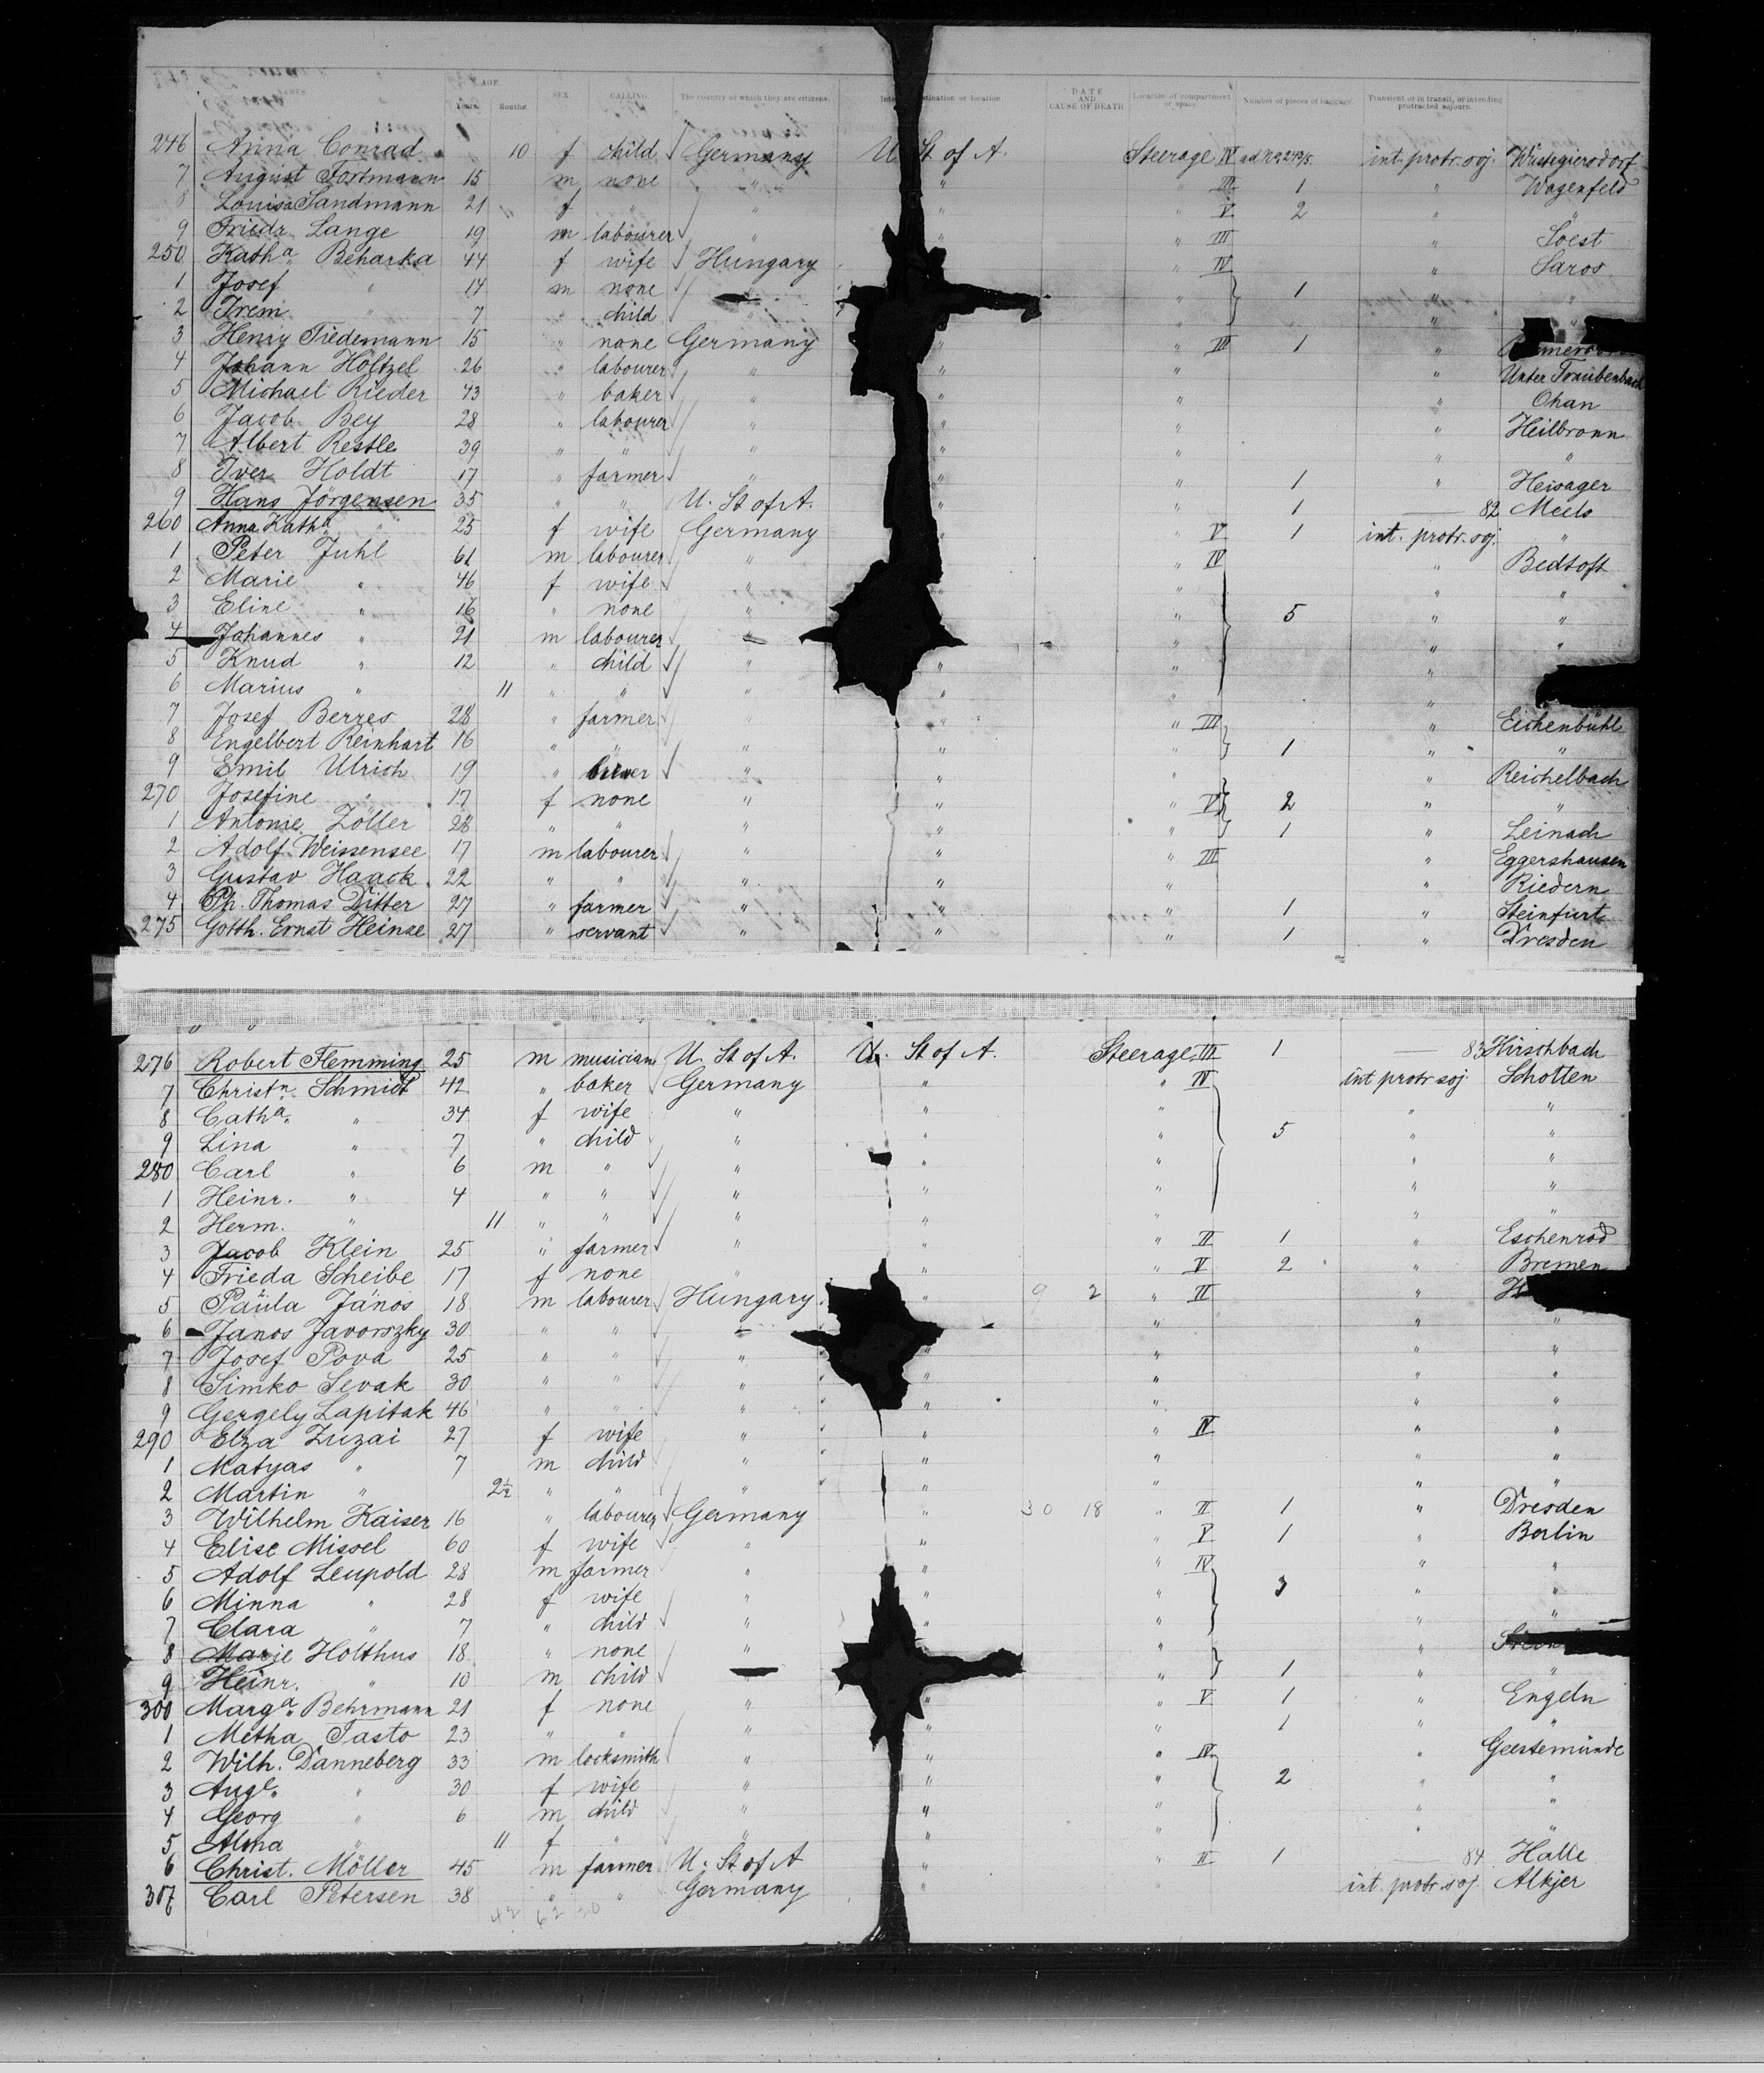 NAMES AGE. Years. Months. SEX. CALLING. The country of which they are citizens. Intended destination or location. DATE AND CAUSE OF DEATH Location of compartment or space. Number of pieces of baggage. Transient or in transit, or intending protracted sojourn.
246 Anna Conrad 10 f child Germany U. St of A. Steerage IV int. protr. soj. Wüstegiersdorf
7 August Fortmann 15 m none " " " III 1 " Wagenfeld
8 Louisa Sandmann 21 f " " " " V 2 " "
9 Friedr Lange 19 m labourer " " " III " Soest
250 Kath a. Beharka 44 f wife Hungary " IV " Saros
1 Josef " 14 m none " " 1 " "
2 Irem " 7 " child " " " "
3 Henry Tiedemann 15 " none Germany " " III 1 "
4 Johann Höltzel 26 " labourer " " " " Unter Traubenbach
5 Michael Rieder 43 " baker " " " " Chan
6 Jacob Bey 28 " labourer " " " " Heilbronn
7 Albert Restle 39 " " " " " " "
8 Iver Holdt 17 " farmer " " " 1 " Heisager
9 Hans Jörgensen 35 " " U. St of A. " " 1 — 82 Meels
260 Anna Kath a. " 25 f wife Germany " " V 1 int. protr. soj. "
1 Peter Juhl 61 m labourer " " " IV " Bedtoft
2 Marie " 46 f wife " " " " "
3 Eline " 16 " none " " " 5 " "
4 Johannes " 21 m labourer " " " "
5 Knud " 12 " child " " " "
6 Marius " 11 " " " " " "
7 Josef Berres 28 " farmer " " " III " Eichenbühl
8 Engelbert Reinhart 16 " " " " " 1 " "
9 Emil Ulrich 19 " " " " " Reichelbach
270 Josefine " 17 f none " " " V 2 " "
1 Antonie Zöller 28 " " " " " 1 " Leinach
2 Adolf Weissensee 17 m labourer " " " III " Eggershausen
3 Gustav Haack 22 " " " " " " Riedern
4 Ph. Thomas Ditter 27 " farmer " " " 1 " Steinfurt
275 Gotth. Ernst Heinze 27 " servant " " " 1 " Dresden
276 Robert Flemming 25 m musician U. St of A. U. St of A. Steerage III 1 — 83 Hirschbach
7 Christ n. Schmidt 42 " baker Germany " " IV int protr soj. Schotten
8 Cath a. " 34 f wife " " " " "
9 Lina " 7 " child " " " 5 " "
280 Carl " 6 m " " " " " "
1 Heinr. " 4 " " " " " " "
2 Herm. " 11 " " " " " " "
3 Jacob Klein 25 " farmer " " " II 1 " Eschenrod
4 Frieda Scheibe 17 f none " " " V 2 " Bremen
5 Paula János 18 m labourer Hungary " 9 2 " II "
6 Janos Javorszky 30 " " " " "
7 Josef Pova 25 " " " " " "
8 Simko Sevak 30 " " " " " " "
9 Gergely Lapitak 46 " " " " " " "
290 Elza Zuzai 27 f wife " " " IV " "
1 Matyas " 7 m child " " " " "
2 Martin " 2½ " " " " " " "
3 Wilhelm Kaiser 16 " labourer Germany " 30 18 " II 1 " Dresden
4 Elise Missel 60 f wife " " " V 1 " Berlin
5 Adolf Leupold 28 m farmer " " " IV " "
6 Minna " 28 f wife " " " 3 " "
7 Clara " 7 " child " " " " "
8 Marie Holthus 18 " none " " "
9 Heinr. " 10 m child " 1 " "
300 Marg a. Behrmann 21 f none " " " V 1 " Engeln
1 Metha Tasto 23 " " " " " 1 " "
2 Wilh. Danneberg 33 m locksmith " " " IV " Geestemünde
3 Aug e. " 30 f wife " " " 2 " "
4 Georg " 6 m child " " " " "
5 Alma " 11 f " " " " " "
6 Christ. Möller 45 m farmer U. St of A " " II 1 — 84 Halle
307 Carl Petersen 38 " " Germany " " int. protr. soj. Alkjer
42 62 30